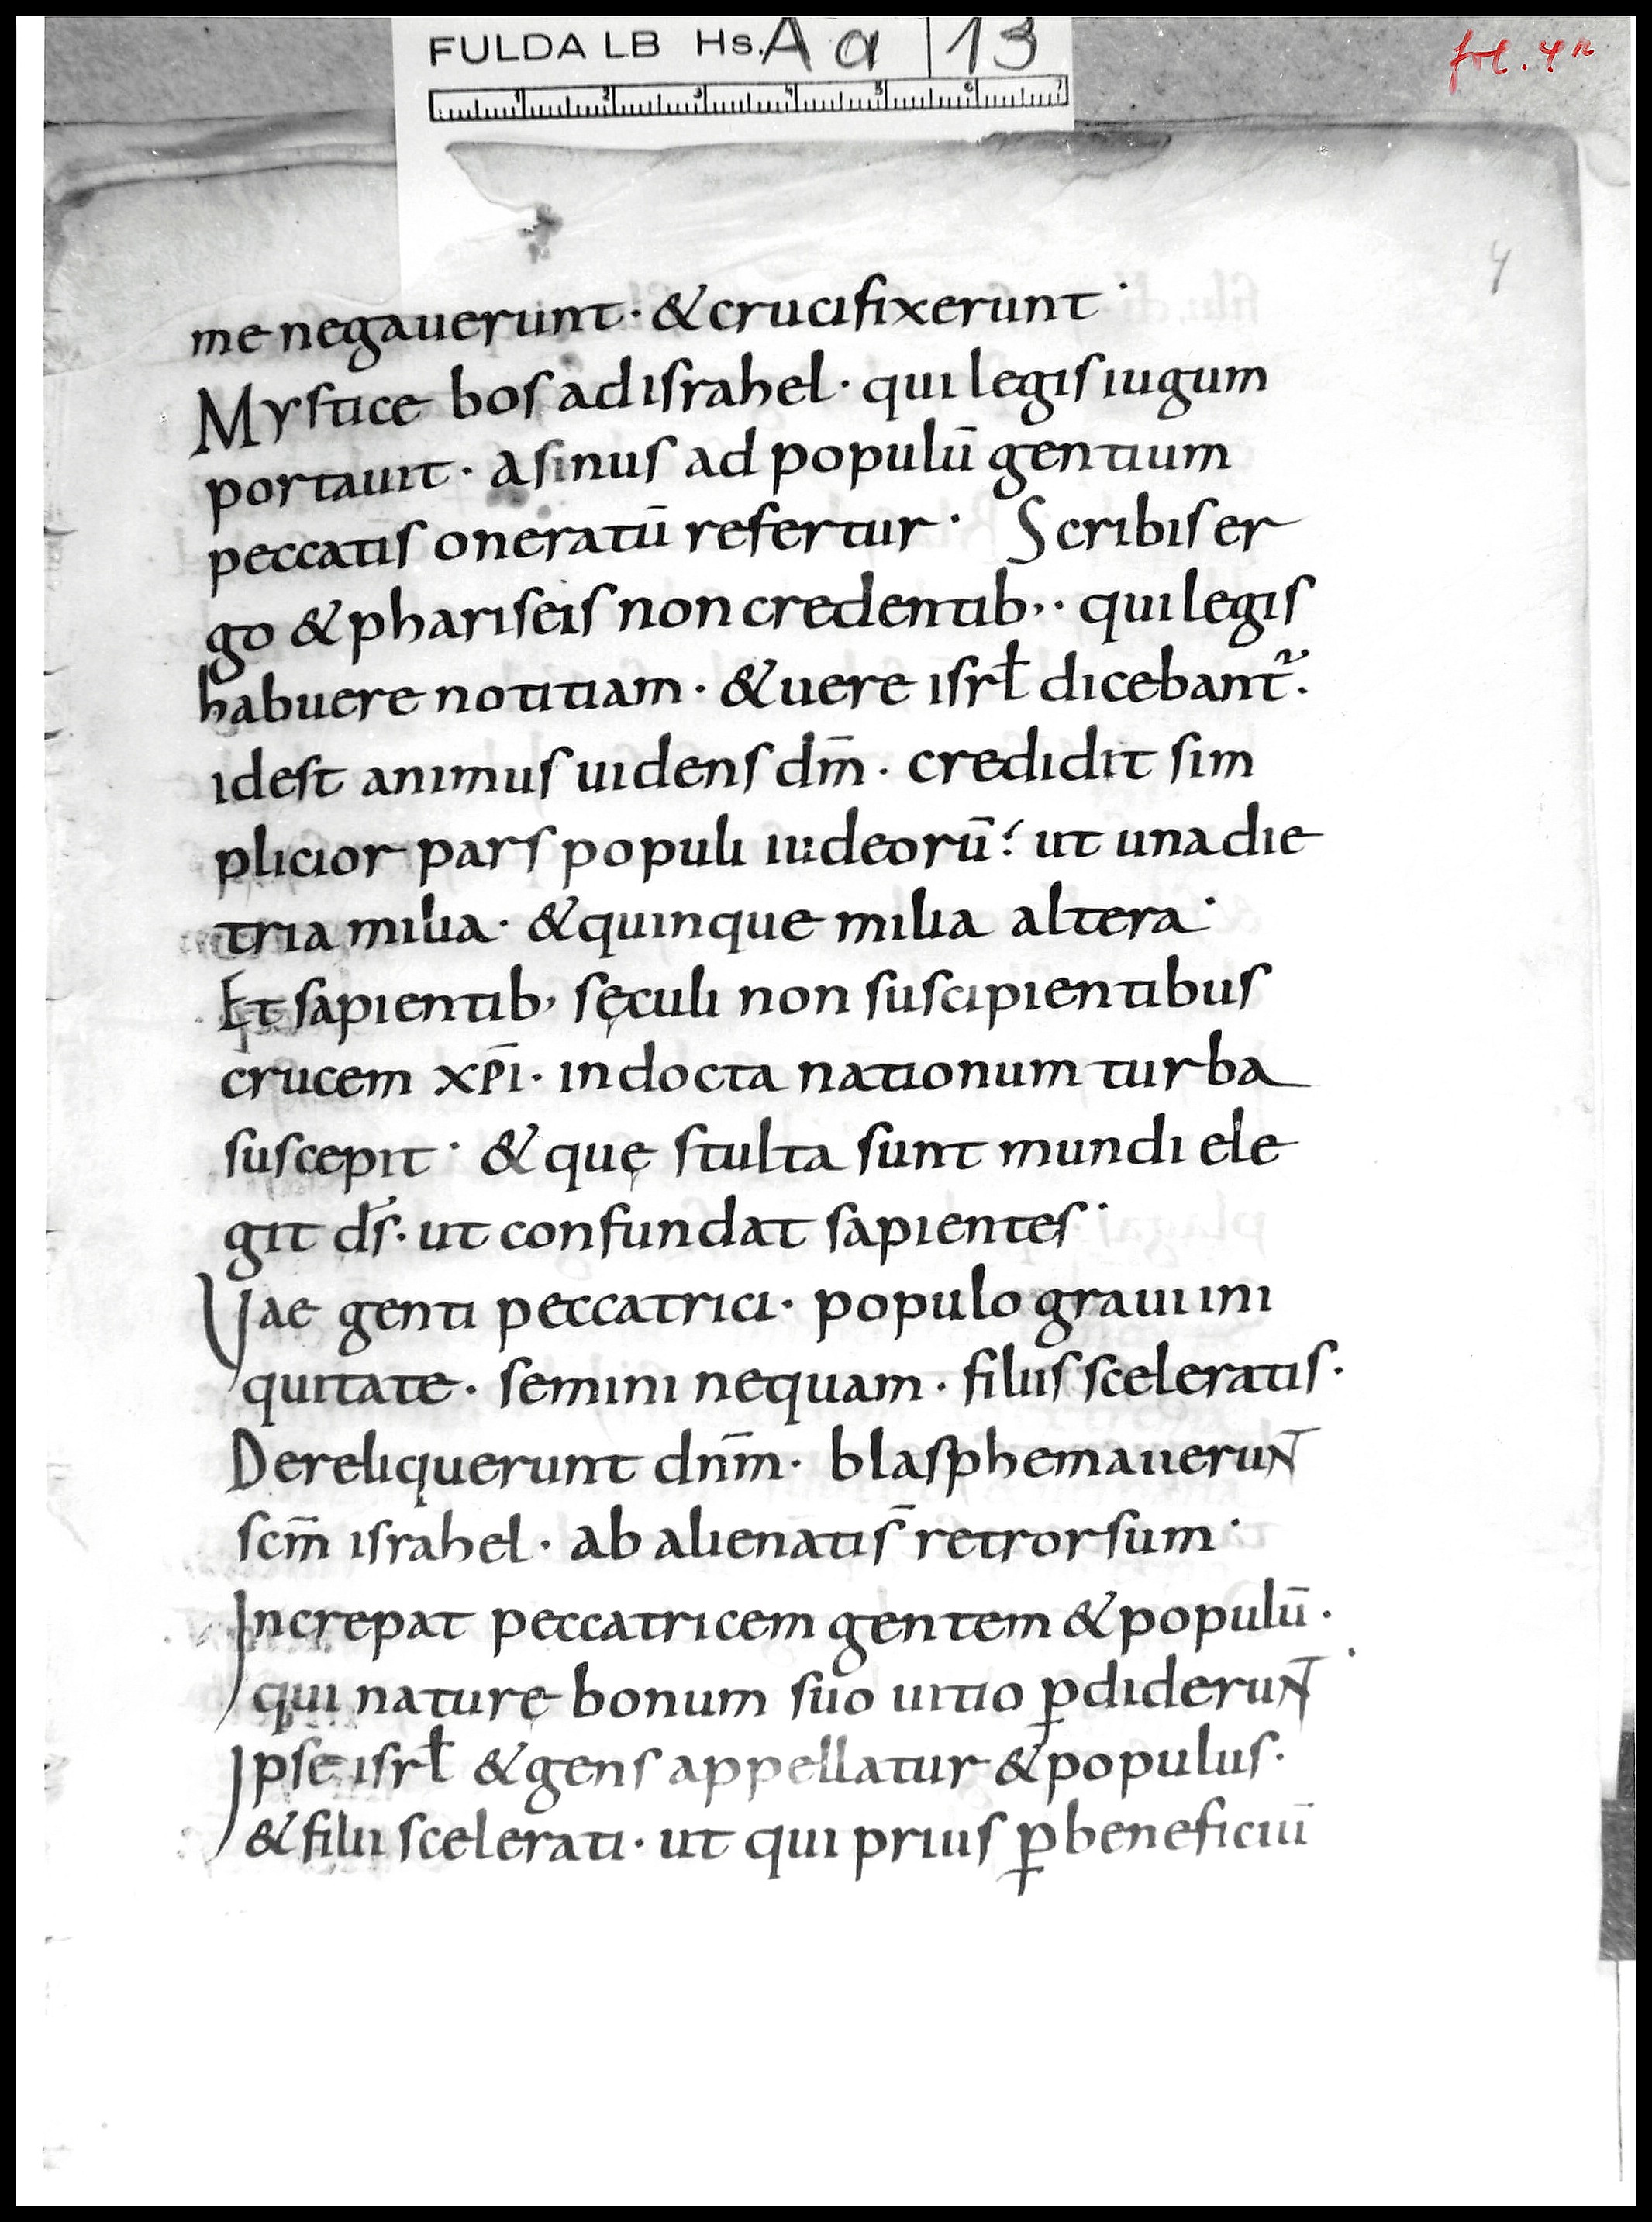 FULDA LB Hs. Aa 13
fol. 4r
4
me negauerunt · & crucifixerunt ·
Mystice bos ad israhel · qui legis iugum
portauit · asinus ad populū gentium
peccatis oneratū refertur · Scribis er
go & phariseis non credentib; · qui legis
habuere notitiam · & uere isrł dicebant᷑ ·
idest animus uidens dm̄ · credidit sim
plicior pars populi iudeorū ut una die
tria milia · & quinque milia altera ·
Et sapientib; sęculi non suscipientibus
crucem xp̄i · indocta nationum turba
suscepit · & quę stulta sunt mundi ele
git ds̄ · ut confundat sapientes ·
Uae genti peccatrici · populo graui ini
quitate · semini nequam · filiis sceleratis ·
Dereliquerunt dnm̄ · blasphemauerunt
scm̄ israhel · ab alienati s̄ retrorsum ·
Increpat peccatricem gentem & populū ·
qui naturę bonum suo uitio ꝑdiderunt ·
Ipse isrł & gens appellatur & populus ·
& filii scelerati · ut qui prius ꝑ beneficiū